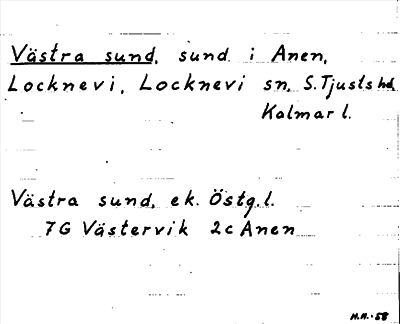 Västra sund, sund i Anen,
Locknevi, Locknevi sn, S. Tjusts hd
Kalmar l.
Västra sund, ek. Östg. l.
7G Västervik 2c Anen
M.H.-58